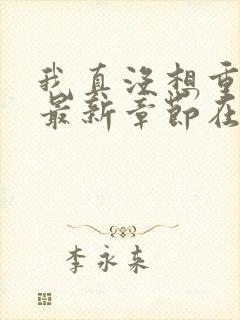 我真没想重
最新章节在
李永来